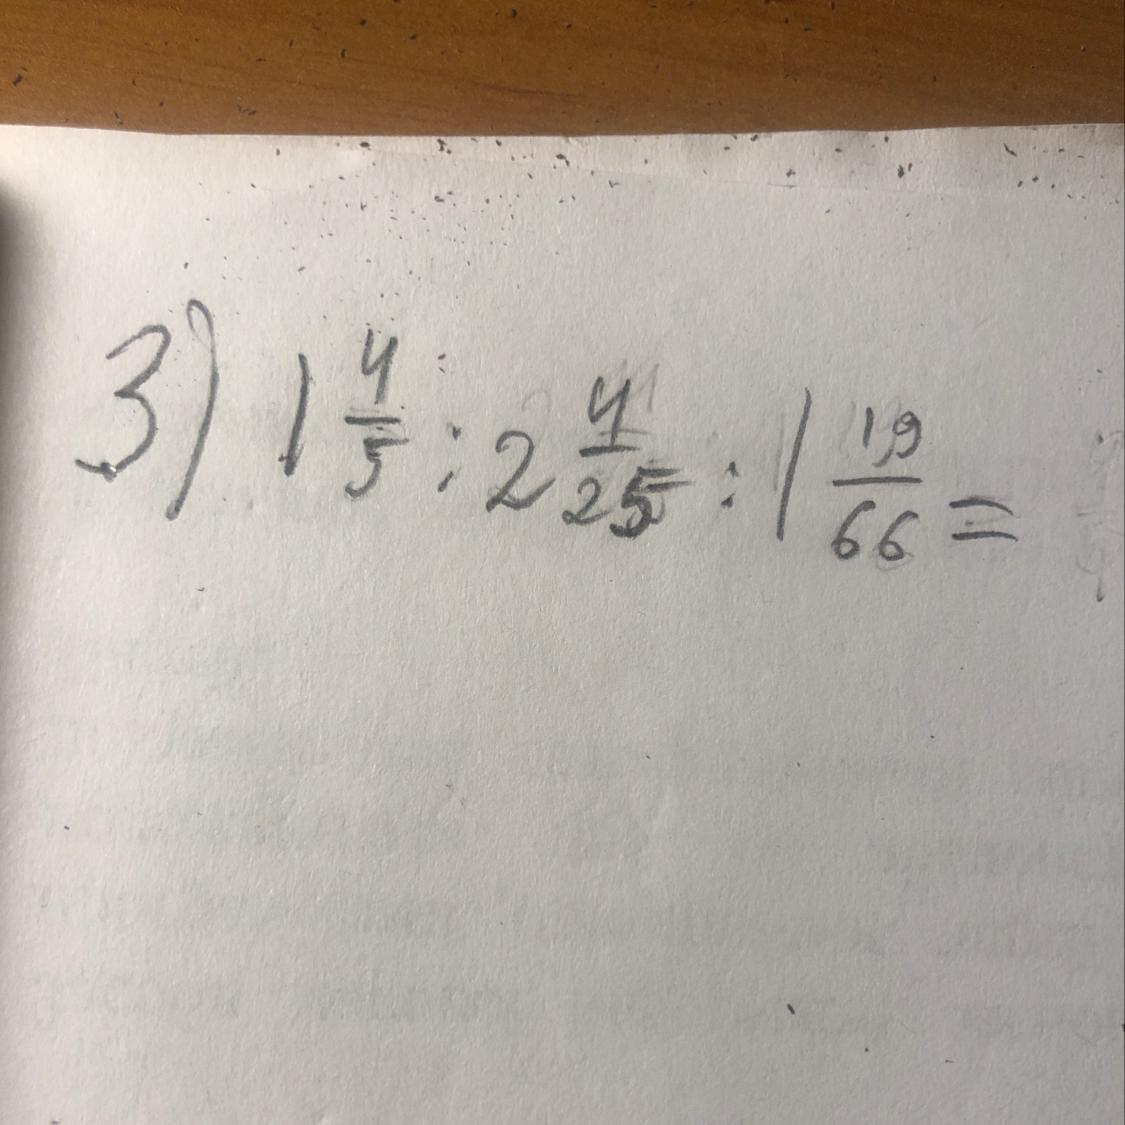 3) 1 4/5 : 2 4/25 : 1 19/66 =